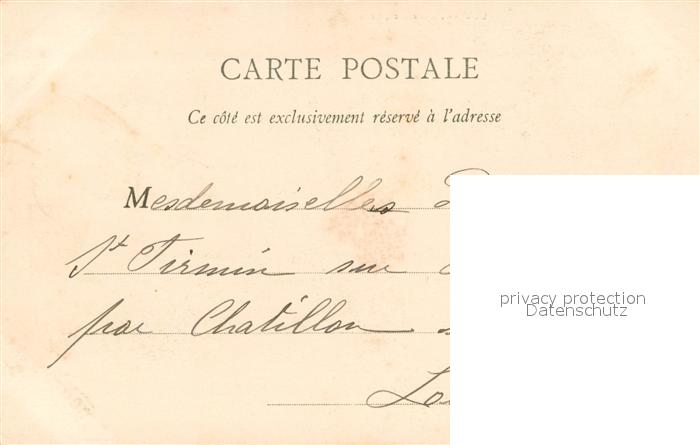 CARTE POSTALE
Ce côté est exclusivement réservé à l'adresse
Mesdemoiselles
St Firmin sur
par Chatillon
privacy protection
Datenschutz